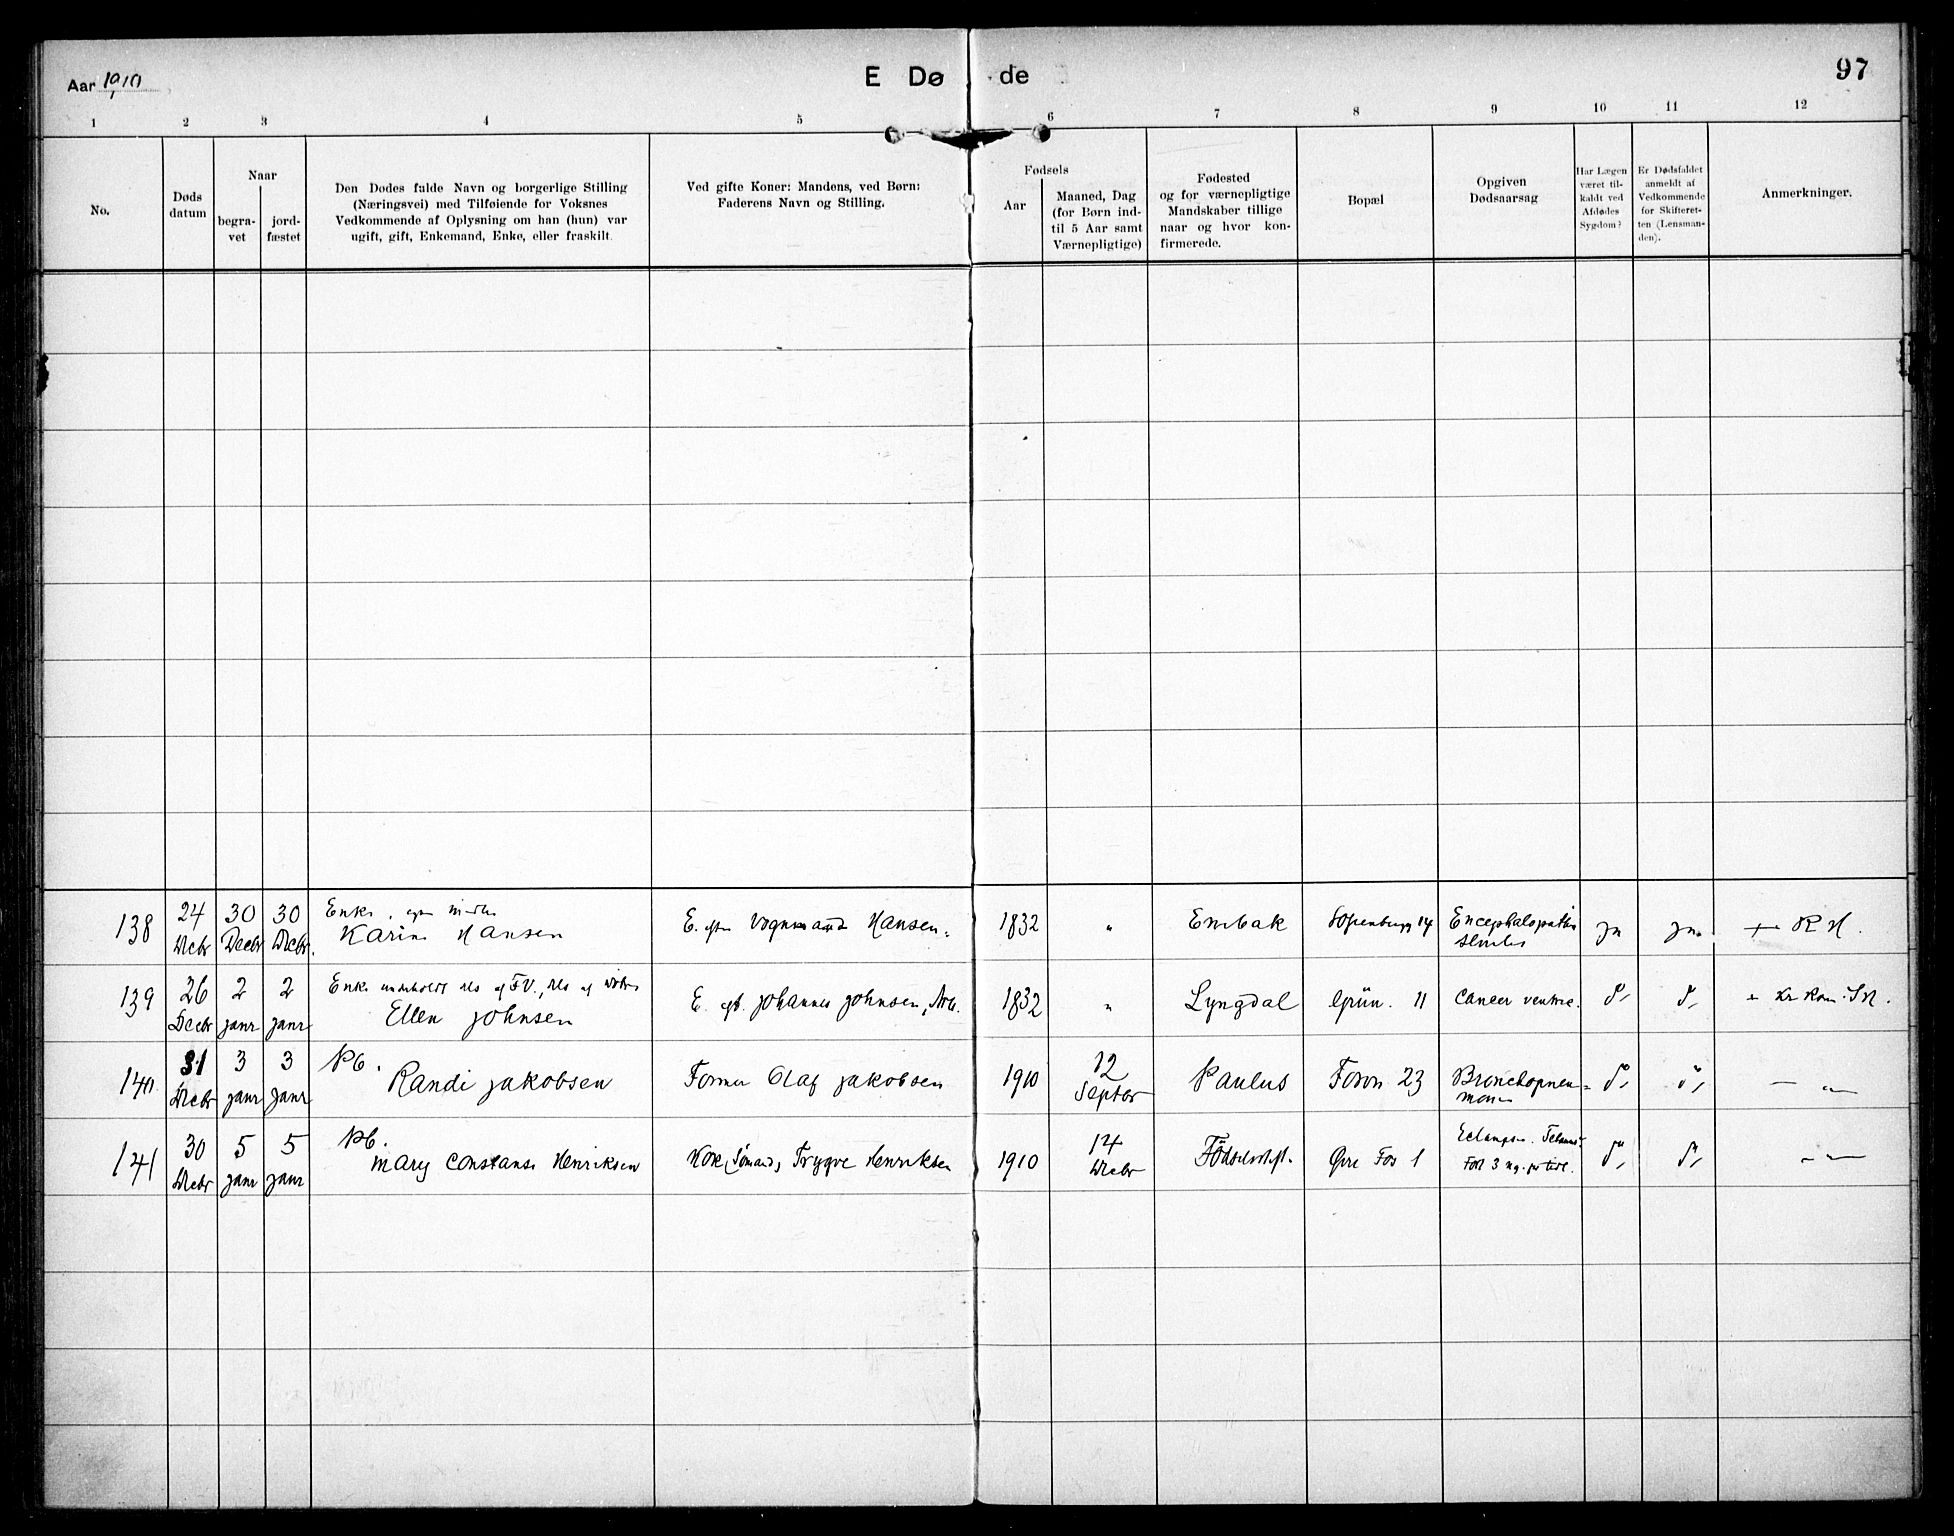 Aar 1910
E Dø de
97
1 2 3 4 5 6 7 8 9 10 11 12
No.
Døds
datum
Naar
begra-
vet
jord-
fæstet
Den Dødes fulde Navn og borgerlige Stilling
(Næringsvei) med Tilføiende for Voksnes
Vedkommende af Oplysning om han (hun) var
ugift, gift, Enkemand, Enke, eller fraskilt.
Ved gifte Koner: Mandens, ved Børn:
Faderens Navn og Stilling.
Fødsels
Aar
Maaned, Dag
(for Børn ind-
til 5 Aar samt
Værnepligtige)
Fødested
og for værnepligtige
Mandskaber tillige
naar og hvor kon-
firmerede.
Bopæl
Opgiven
Dødsaarsag
Har Lægen
været til-
kaldt ved
Afdødes
Sygdom?
Er Dødsfaldet
anmeldt af
Vedkommende
for Skifteret-
ten (Lensman-
den).
Anmerkninger.
138
24
Decbr
30
Decbr
30
Decbr.
Enke,
Karine Hansen
E. efter Vognmand Hansen.
1832
"
Enebak
14
Encephalopathia
ja
ja
+ R H.
139
26
Decbr
2
janr
2
janr
Enke underholdt dls af FV., dls af
Ellen Johnsen
E. eft. Johannes Johnsen, Arb.
1832
"
Lyngdal
Grün. 11
Cancer ventric.
d°,
d°,
+ Kr Kom. SH.
140
31
Decbr
3
janr
3
janr
Pb.
Randi Jakobsen
Former Olaf Jakobsen
1910
12
Septbr
Paulus
Fossv 23
Bronchopneu-
monia
d°,
d°,
— " —
141
30
Decbr
5
janr
5
janr
Pb.
Mary Constanse Henriksen
Kok, Sømand, Trygve Henriksen
1910
14
Decbr
Födselsstift.
Øvre Fos 1
Eclampsi.
d°,
d°,
— " —